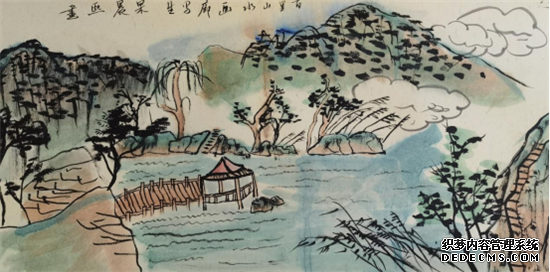 百里山水画廊写生 晨熙畫
织梦内容管理系统
DEDECMS.COM